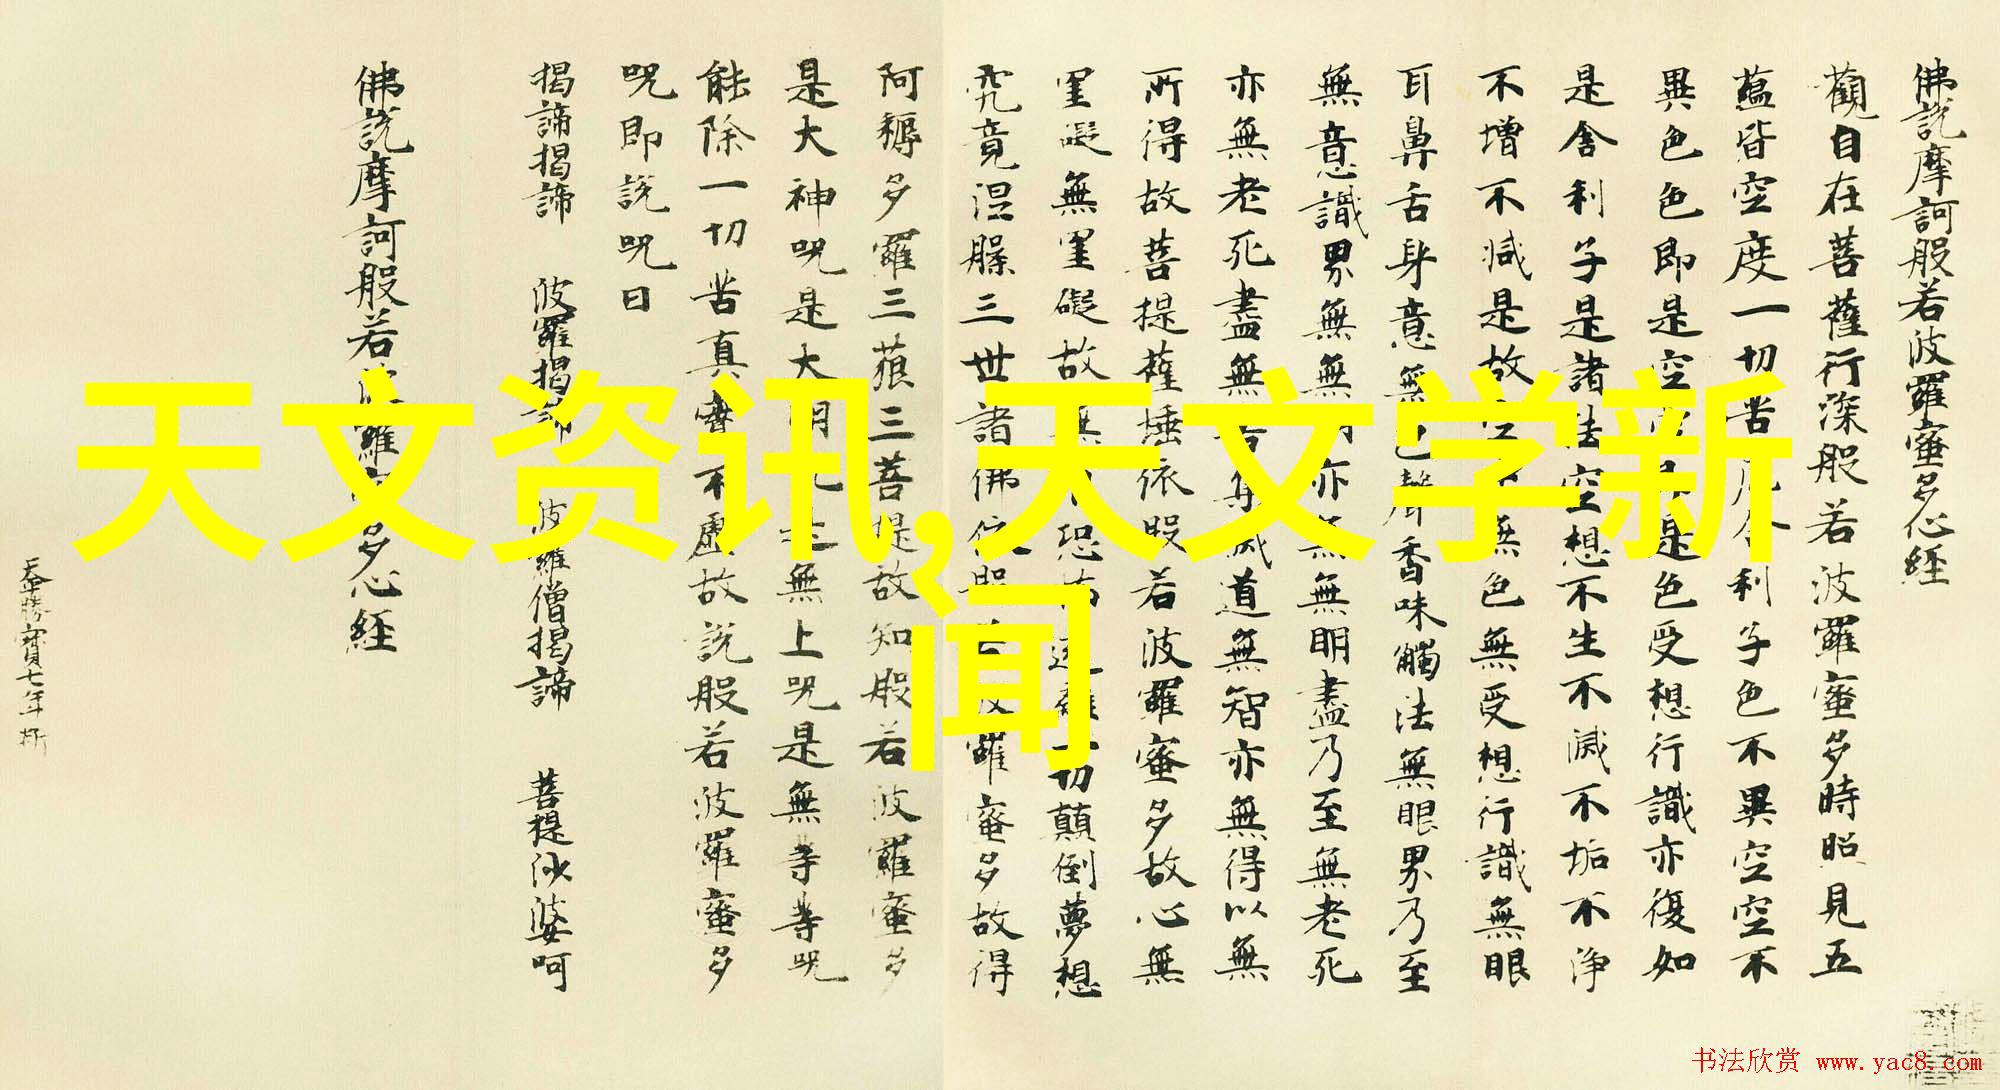 天文资讯,天文学新
闻
佛説摩訶般若波羅蜜多心経
觀自在菩薩行深般若波羅蜜多時照見五
蘊皆空度一切苦厄舍利子色不異空空不
異色色即是空空即是色受想行識亦復如
是舍利子是諸法空想不生不滅不垢不浄
不增不減是故空中無色無受想行識無眼
耳鼻舌身意無色聲香味觸法無眼界乃至
無意識界無無明亦無無明盡乃至無老死
亦無老死盡無苦集滅道無智亦無得以無
所得故菩提薩埵依般若波羅蜜多故心無
罣礙無罣礙故無有恐怖遠離一切顛倒夢想
究竟涅槃三世諸佛依般若波羅蜜多故得
阿耨多羅三藐三菩提故知般若波羅蜜多
是大神呪是大明呪是無上呪是無等等呪
能除一切苦真實不虛故説般若波羅蜜多
呪即説呪曰
揭諦揭諦 波羅揭諦 波羅僧揭諦 菩提沙婆呵
佛説摩訶般若波羅蜜多心経
天平勝寳七年
书法欣赏 www.yac8.com